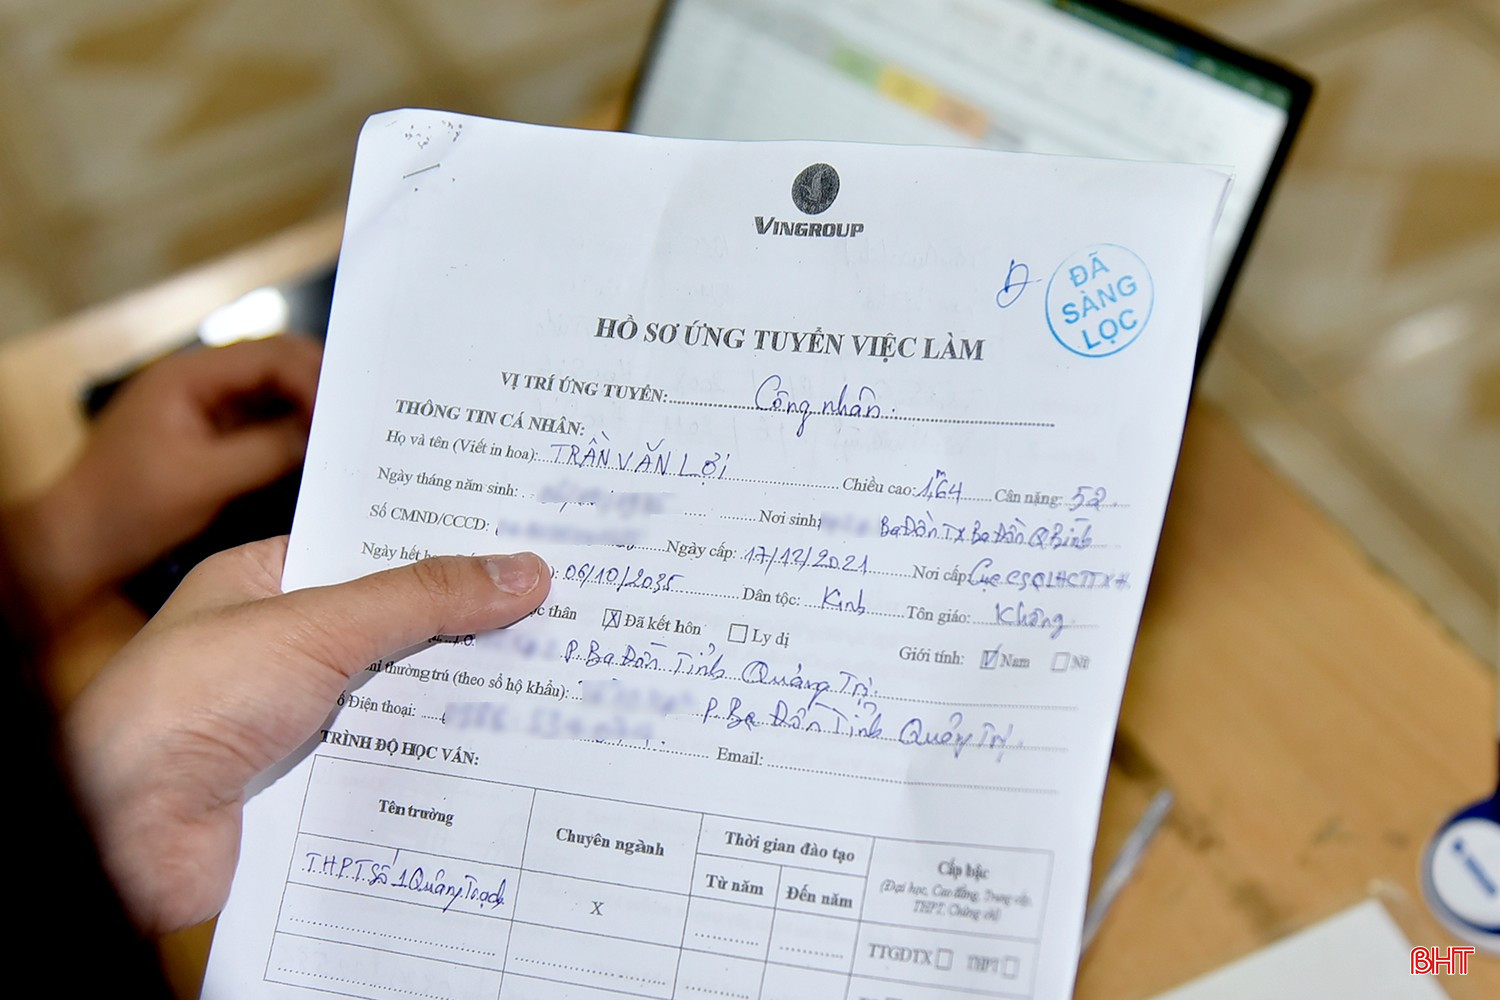 VINGROUP
ĐÃ
SÀNG
LỌC
HỒ SƠ ỨNG TUYỂN VIỆC LÀM
VỊ TRÍ ỨNG TUYỂN: Công nhân.
THÔNG TIN CÁ NHÂN:
Họ và tên (Viết in hoa): TRẦN VĂN LỢI Chiều cao: 1m64 Cân nặng: 52
Ngày tháng năm sinh: Nơi sinh: Ba Đồn TX Ba Đồn Q Bình
Số CMND/CCCD: Ngày cấp: 17/12/2021 Nơi cấp: Cục CSQLHCTTXH
Ngày hết 06/10/2035 Dân tộc: Kinh Tôn giáo: Không
thân X Đã kết hôn Ly dị Giới tính: Nam Nữ
P. Ba Đồn Tỉnh Quảng Trị.
thường trú (theo sổ hộ khẩu): P. Ba Đồn Tỉnh Quảng Trị.
Điện thoại: Email:
TRÌNH ĐỘ HỌC VẤN:
Tên trường Chuyên ngành Thời gian đào tạo Cấp bậc
(Đại học, Cao đẳng, Trung cấp, THPT, Chứng chỉ)
Từ năm Đến năm
THPT Số 1 Quảng Trạch X
TTGDTX THPT
BHT